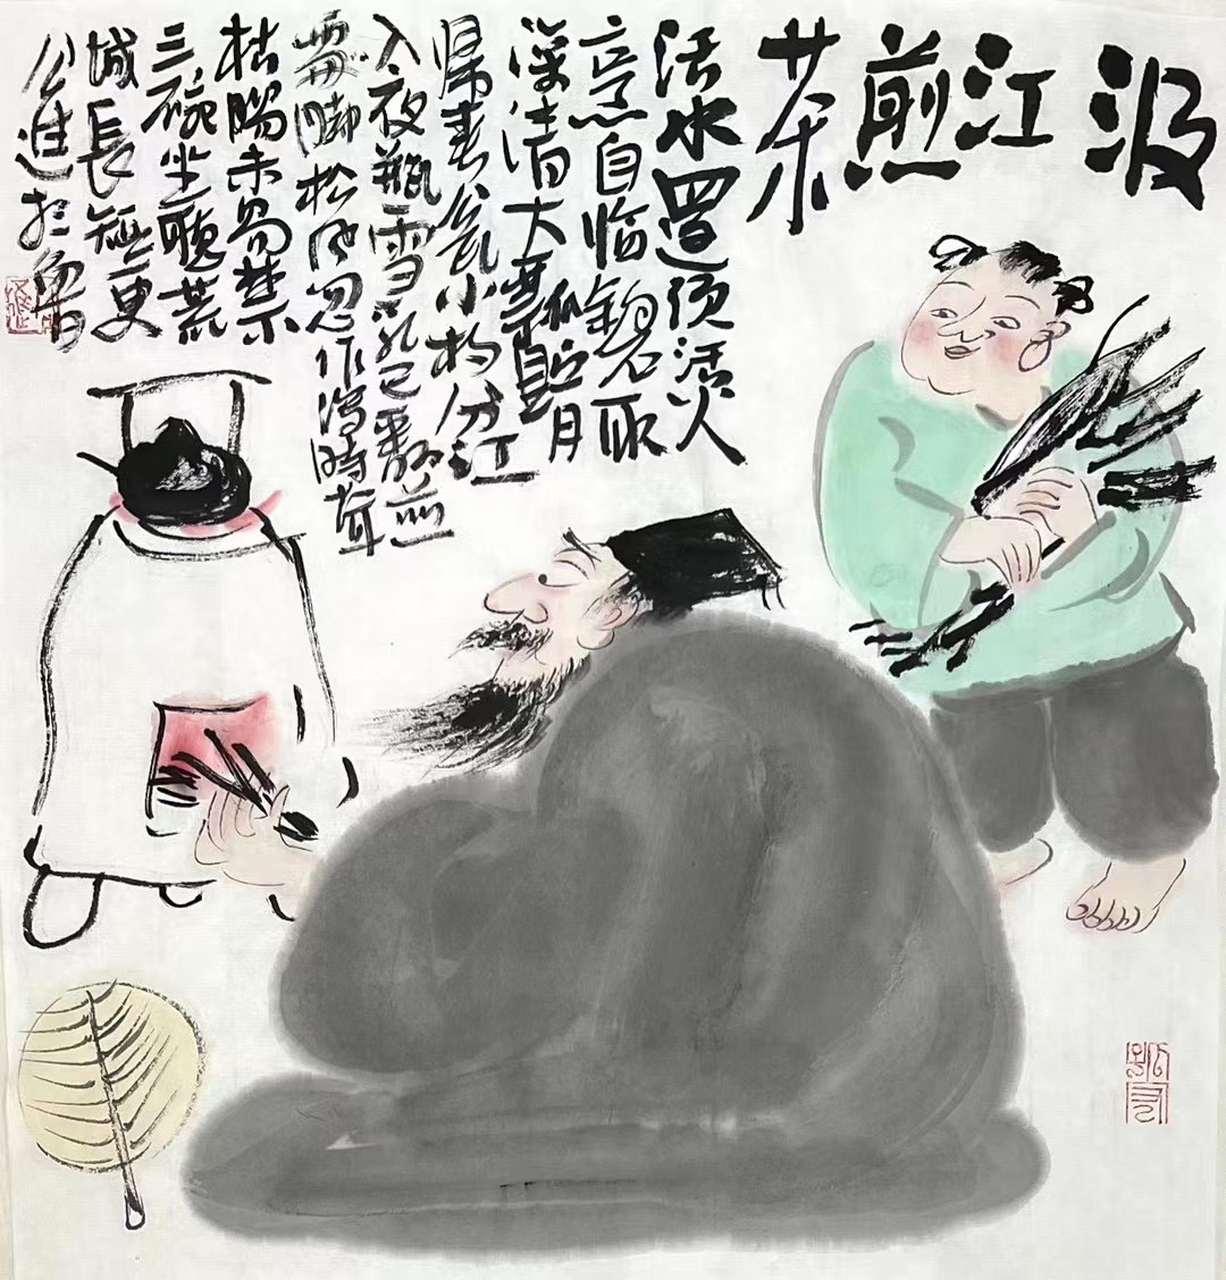 汲江煎茶
活水還須活火
烹自临钓石取
深清大瓢貯月
帰春瓮小杓分江
入夜瓶雪乳已翻煎
處脚松风忽作泻時聲
枯腸未易禁
三碗坐聽荒
城長短更
公進於